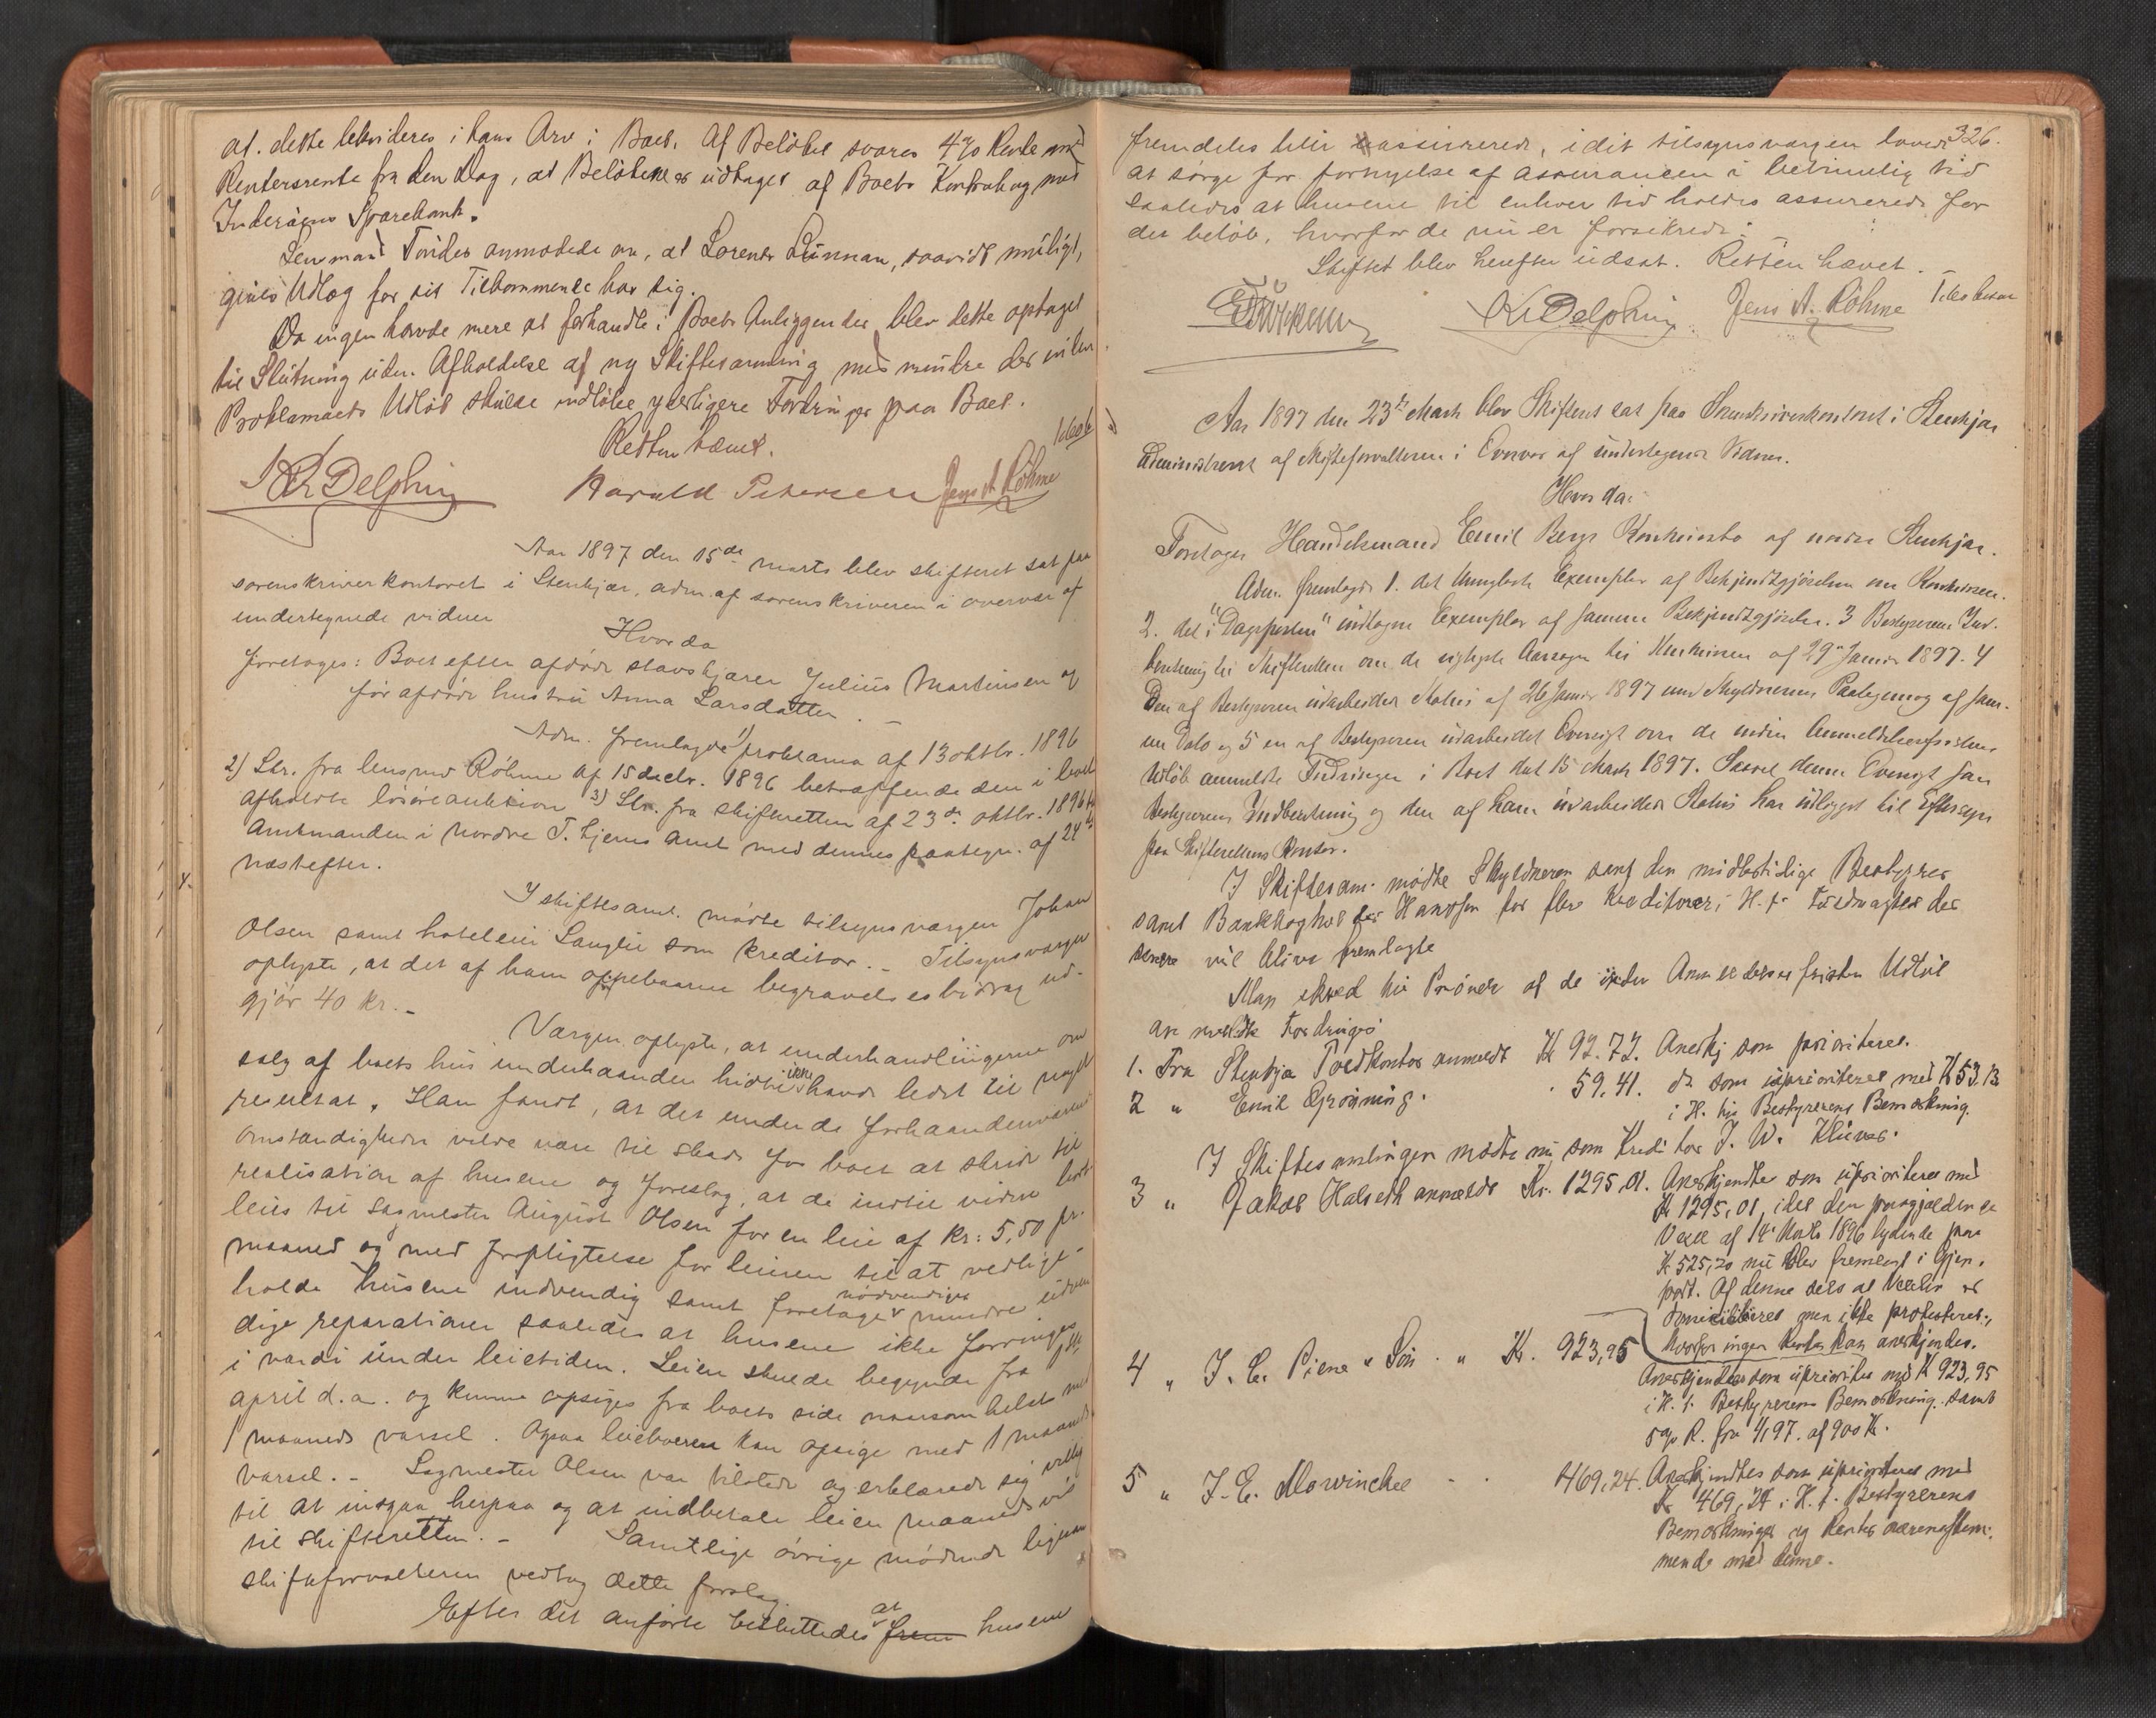 at dette likvideres i hans Arv i Boet. Af Beløbet svares 4% Rente med
Rentersrente fra den Dag, at Beløbene er udtaget af Boets Kontrabog med
Inderøens Sparebank.
Lensmand Tønder anmodede om, at Lorents Lünnan, saavidt muligt,
gives Udlæg for sit Tilkommende hos sig.
Da ingen havde mere at forhandle i Boets Anliggender blev dette optaget
til Slutning uden Afholdelse af ny Skiftesamling med mindre der inden
Proklamaets Udløb skulde indløbe yderligere Fordringer paa Boet.
Retten hævet.
K Delphin Harald Petersen Jens A Röhme
Aar 1897 den 15de marts blev skifteret sat paa
sorenskriverkontoret i Stenkjær, adm. af sorenskriveren i overvær af
undertegnede vidner
Hvor da
foretoges: Boet efter afdøde stavskjærer Julius Martinsen og
før afdøde hustru Anna Larsdatter. –
Adm. fremlagde 1) proklama af 13 oktbr. 1896
2) Skr. fra lensmd Röhme af 15 decbr. 1896 betræffende den i boet
afholdte løsøreauktion 3) Skr. fra skifteretten af 23de oktbr. 1896 til
Amtmanden i Nordre T. hjems Amt med dennes paategn. af 24de
næstefter.
I skiftesaml. mødte tilsynsværgen Johan
Olsen samt hoteleier Langlie som kreditor. – Tilsynsværgen
oplyste, at det af ham oppebaarne begravelsesbidrag ud-
gjør 40 kr. –
Værgen oplyste, at underhandlingerne om
salg af boets hus underhaanden hidtil ikke havde ledet til noget
resultat. Han fandt, at det under de forhaandenværende
omstændigheder vilde være til skade for boet at skride til
realisation af husene og foreslog, at de indtil videre bort
leies til sagmester August Olsen for en leie af kr: 5,50 pr.
maaned og med forpligtelse for leieren til at vedlige-
holde husene indvendig samt foretage nødvendige mindre udven
dige reparationer saaledes at husene ikke forringes
i værdi under leietiden. Leien skulde begynde fra 1ste
april d.a. og kunne opsiges fra boets side naarsomhelst med
1 maaneds varsel. Ogsaa leieboeren kan opsige med 1 maaneds
varsel. – Sagmester Olsen var tilstede og erklærede sig villig
til at indgaa herpaa og at indbetale leien maanedsvis
til skifteretten. – Samtlige øvrige mødende ligesom
skifteforvalteren vedtog dette forslag.
Efter det anførte besluttedes at frem husene
326.
fremdeles blir assurerede, idet tilsynsværgen lovede
at sørge for fornyelse af assurancen i betimelig tid
saaledes at husene til enhver tid holdes assurerede for
det beløb, hvorfor de nu er forsikrede. –
Skiftet blev herefter udsat. Retten hævet. –
K Delphin Jens A. Röhme
Aar 1897 den 23de Marts blev Skifteret sat paa Sorenskriverkontoret i Stenkjær
administreret af Skifteforvalteren i Overvær af undertegnede Vidner.
Hvor da:
Foretoges Handelsmand Emil Bergs Konkursbo af nordre Stenkjær.
Adm. fremlagde 1. det Exemplar af Bekjendtgjørelsen om Konkursen.
2. det i "Dagsposten" indtagne Exemplar af samme Bekjendtgjørelse. 3 Bestyrerens Ind-
beretning til Skifteretten om de vigtigste Aarsager til Konkursen af 29de Januar 1897. 4
Den af Bestyreren udarbeidede Status af 26 Januar 1897 med Skyldnerens Paategning af sam-
me Dato og 5 en af Bestyreren udarbeidet Oversigt over de inden Anmeldelsesfristens
Udløb anmeldte Fordringer i Boet dat 15 Marts 1897. Saavel denne Oversigt som
Bestyrerens Indberetning og den af ham udarbeidede Status har udligget til Eftersyn
paa Skifterettens Kontor.
I Skiftesam. mødte Skyldneren samt den midlertidige Bestyrer
samt Bankbogholder Hansen for flere Kreditorer, H. f. Fuldmagter der
senere vil blive fremlagte
Man skred til Prøvelse af de inden Anmeldelsesfristen Udløb
anmeldte Fordringer
1. Fra Stenkjær Toldkontor anmeldt Kr 92.72. Anerkj som prioriteret.
2 " Emil Grönning. 59.41. do som uprioriteret med Kr 53.13
i H. til Bestyrerens Bemærkning.
I Skiftesamlingen mødte nu som Kreditor J. W. Klüver.
3 " Jakob Halseth anmeldt Kr. 1295,01. Anerkjendtes som uprioriteret med
Kr 1295,01, idet den paagjældende
Vexel af 14 Marts 1896 lydende paa
Kr 525,20 nu blev fremlagt i Gjen-
part. Af denne sees at Vexelen er
domicilieret men ikke protesteret,
hvorfor ingen Renter kan anerkjendes.
4 " J. C. Piene & Søn " Kr. 923,95
Anerkjendtes som uprioritet med Kr 923,95
i H. t. Bestyrerens Bemærkning samt
5% R. fra 4/1 97. af 900 Kr.
5 " J. E. Mowinckel 469,24. Anerkjendtes som uprioriteret med
Kr 469,24 i H. t. Bestyrerens
Bemærkninger og Renter overensstem-
mende med denne.